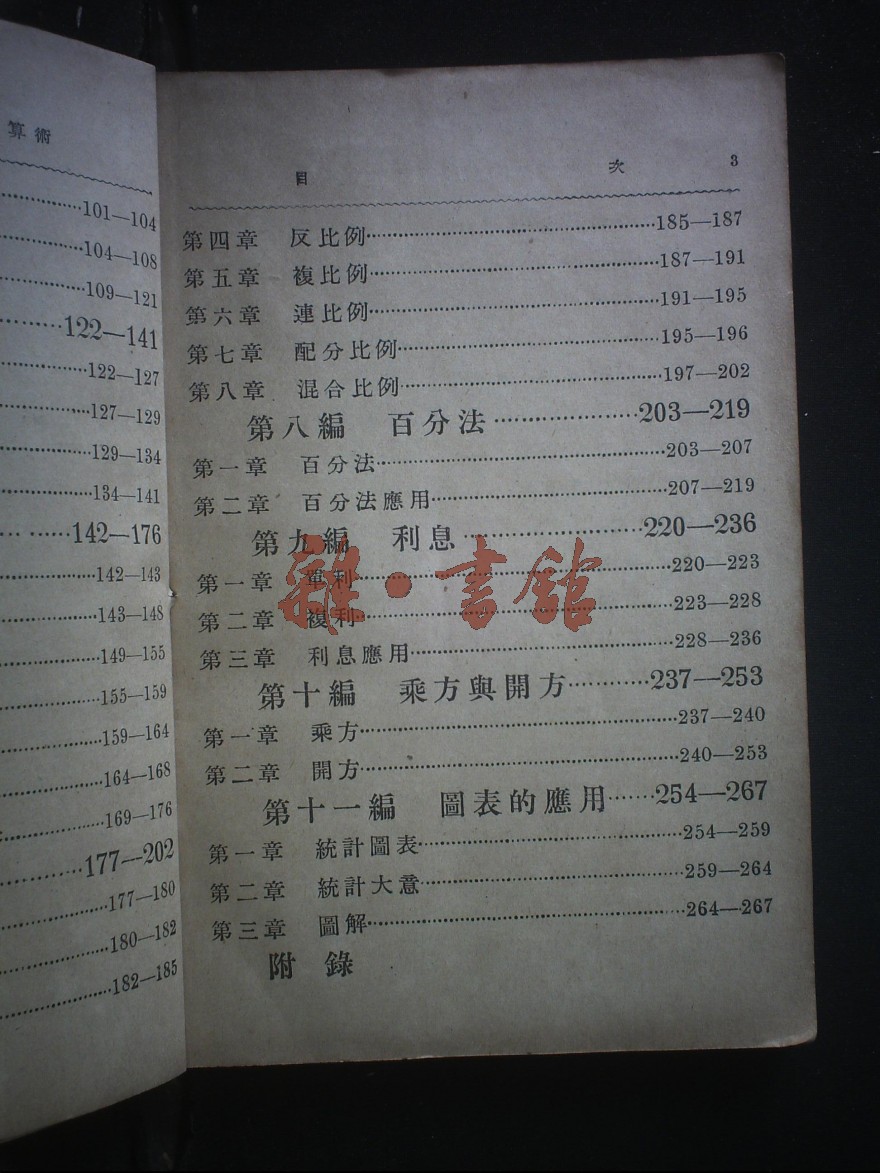 算術
101—104
104—108
109—121
122—141
122—127
127—129
129—134
134—141
142—176
142—143
143—148
149—155
155—159
159—164
164—168
169—176
177—202
177—180
180—182
182—185
目 次 3
第四章 反比例 185—187
第五章 複比例 187—191
第六章 連比例 191—195
第七章 配分比例 195—196
第八章 混合比例 197—202
第八編 百分法 203—219
第一章 百分法 203—207
第二章 百分法應用 207—219
第九編 利息 220—236
第一章 單利 220—223
第二章 複利 223—228
第三章 利息應用 228—236
第十編 乘方與開方 237—253
第一章 乘方 237—240
第二章 開方 240—253
第十一編 圖表的應用 254—267
第一章 統計圖表 254—259
第二章 統計大意 259—264
第三章 圖解 264—267
附錄
雜·書館